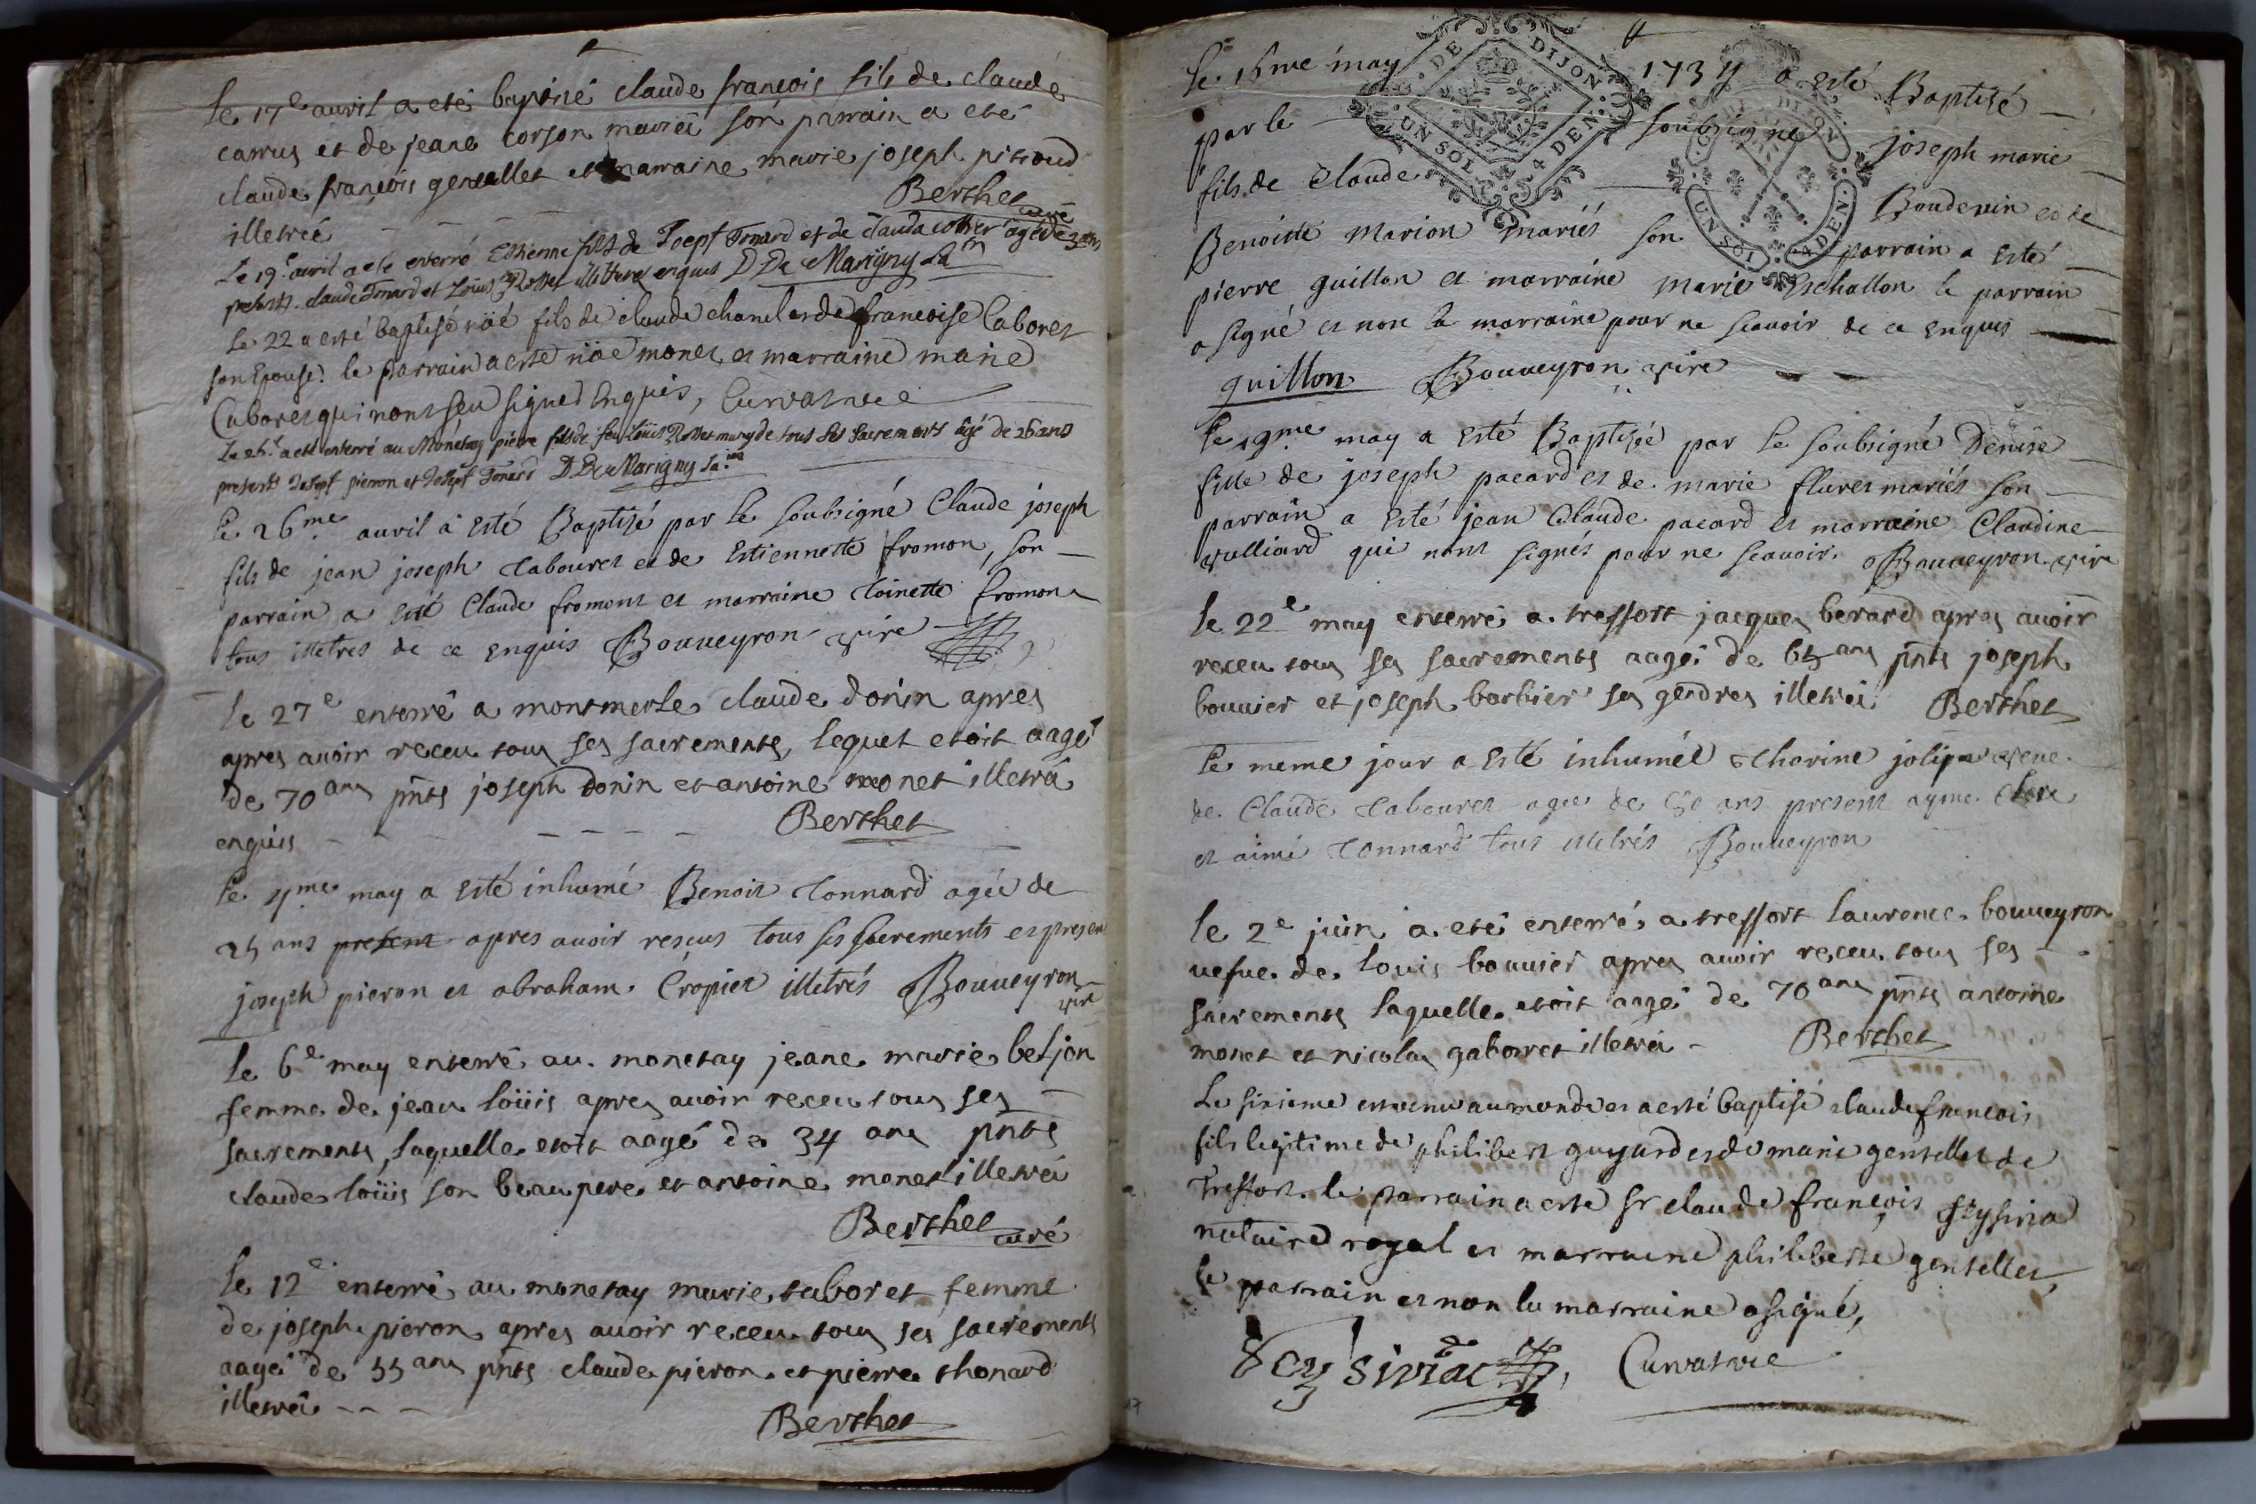 le 17e avril a eté baptisé claude françois fils de claude
carrus et de jeane corson mariéi son parrain a eté
claude françois gensellet et marraine marie joseph pitioud
illetréé Berthet curé
Le 19e avril a ete enterré Estienne fils de Josept Tonard et de Clauda
presents claude Tonard et Loüis Rosset illiteres enquis D De Marigny
Le 22 a esté baptisé nöé fils de claude chanel et de francoise Caboret
son Epouse. le parrain a este nöe monet et marraine marie
Caboret qui nont sceu signer Enquis, Curvatuve
Le 26e a eté enterré au Monetay pierre fils de feu Loüis Rosset muny de tous ses sacrements agé de 26 ans
presents Josept pieron et Josept Tonard D De Marigny
le 26me auril a Esté Baptizé par le soubsigné Claude joseph
fils de jean joseph Tabouret et de Estiennette fromon, son
parrain a esté Claude fromont et marraine Toinette fromon
tous illetres de ce enquis Bouueyron vire
le 27e enterré a montmerle claude donin apres
apres auoir receu tous ses sacrements, lequel etoit aagé
de 70 ans pnts joseph donin et antoine monet illetréi
enquis Berthet
le 4me may a Esté inhumé Benoit Tonnard agée de
25 ans present apres auoir resçus tous ses sacrements et present
joseph pieron et abraham Cropier illetrés Bouueyron
vire
le 6e may enterré au monetay jeane marie beljon
femme de jean loüis apres auoir receu tous ses
sacrements, laquelle etoit aagé de 34 ans pnts
claude loüis son beau pere et antoine monet illetréi
Berthet curé
le 12e enterré au monetay marie taboret femme
de joseph pieron apres auoir receu tous ses sacrements
aagéi de 55 ans pnts claude pieron et pierre thonard
illetréi
Berthet
le 16me may 1734 a esté Baptisé
par le soubsigné joseph marie
fils de Claude Boudenin et de
Benoitte Marion mariés son parrain a esté
pierre guillon et marraine marie Eschallon le parrain
a signé et non la marraine pour ne scauoir de ce enquis
guillon Bouueyron vire
le 19me may a esté Baptisée par le soubsigné Denise
fille de joseph pacard et de marie fluret mariés son
parrain a esté jean Claude pacard et marraine Claudine
vulliard qui nont signés pour ne scauoir. Bouueyron vire
le 22e may enterré a treffort jacques berard apres auoir
receu tous ses sacrements aagéi de 65 ans pnts joseph
bouuier et joseph barbier ses gendres illetréi Berthet
le meme jour a esté inhumée
de Claude Tabouret agee de ans present ayme
et aimé Tonnard tous illetrés Bouueyron
le 2e juin a eté enterré a treffort laurence bouueyron
uefue de louis bouuier apres auoir receu tous ses
sacrements laquelle etoit aagéi de 70 ans pnts antoine
monet et nicolas gaboret illetréi Berthet
Le sixieme est venu au monde et a esté baptisé claude francois
fils legitime de philibert guyard et de marie gensellet de
Treffort. le parrain a esté sr claude françois
notaire royal et marraine philiberte gensellet,
le parrain et non la marraine a signé,
Curvatuve
DE DIJON
UN SOL 4 DEN.
DIJON
UN SOL 4 DEN.